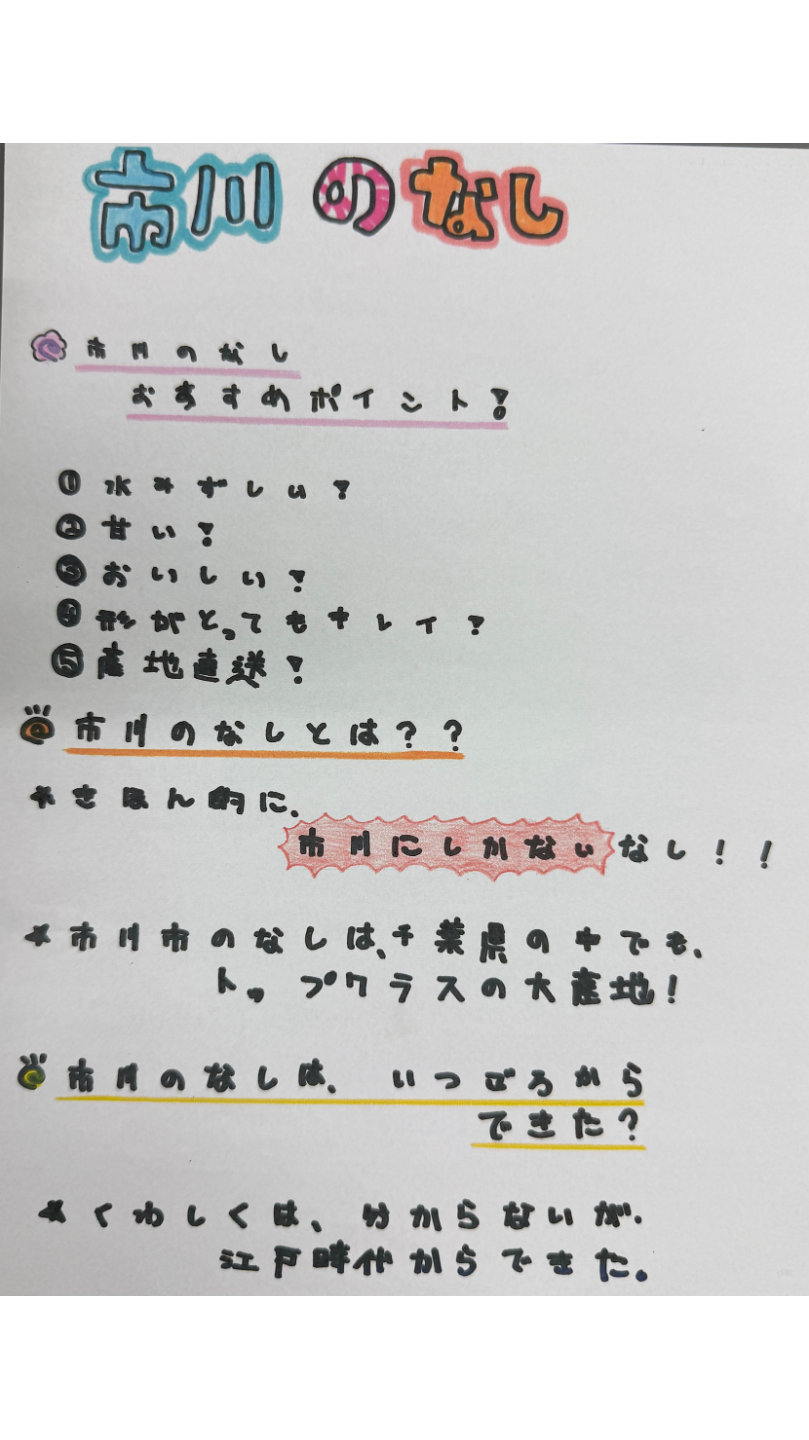 市川のなし
市川のなし
おすすめポイント!
① 水みずしい!
② 甘い!
③ おいしい!
④ 形がとってもキレイ!
⑤ 産地直送!
市川のなしとは??
★きほん的に、
市川にしかないなし!!
★市川市のなしは、千葉県の中でも、
トップクラスの大産地!
市川のなしは、いつごろから
できた?
★くわしくは、分からないが、
江戸時代からできた。